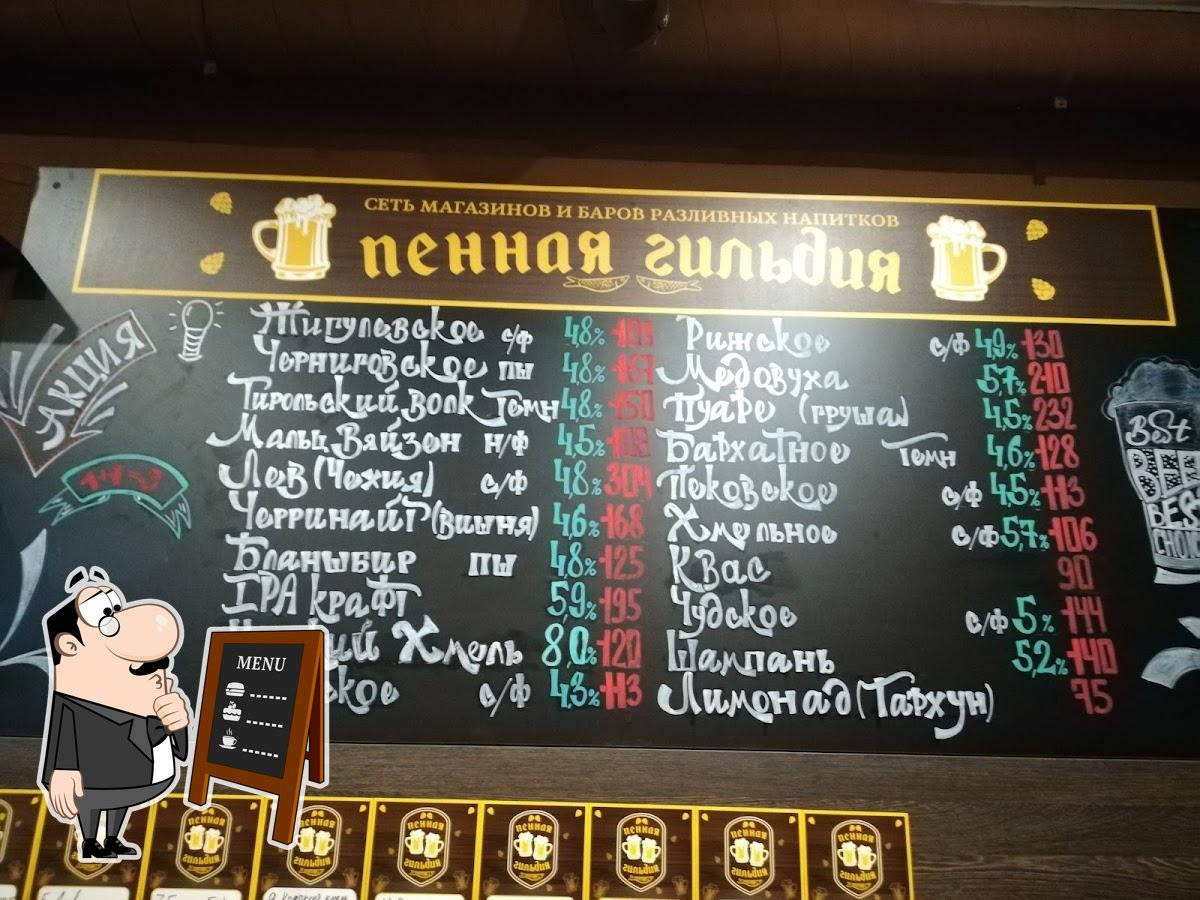 СЕТЬ МАГАЗИНОВ И БАРОВ РАЗЛИВНЫХ НАПИТКОВ
пенная гильдия
АКЦИЯ
1+1=3
Жигулевское с/ф 4,8%
Черниговское пш 4,8%
Тирольский волк Темн 4,8% 150
Мальц Вайзен н/ф 4,5%
Лев (Чехия) с/ф 4,8% 304
Черринайт (вишня) 4,6% 168
Бланшбир пш 4,8% 125
IPA крафт 5,9% 195
Хмель 8,0% 120
с/ф 4,3% 113
Рижское с/ф 4,9% 130
Медовуха 5,7% 210
Пуаре (груша) 4,5% 232
Бархатное Темн 4,6% 128
Псковское с/ф 4,5% 113
Хмельное с/ф 5,7% 106
Квас 90
Чудское с/ф 5% 144
Шампань 5,2% 140
Лимонад (Тархун) 75
BEST
BEER
BEST
CHOICE
MENU
пенная гильдия
пенная гильдия
пенная гильдия
пенная гильдия
пенная гильдия
пенная гильдия
пенная гильдия